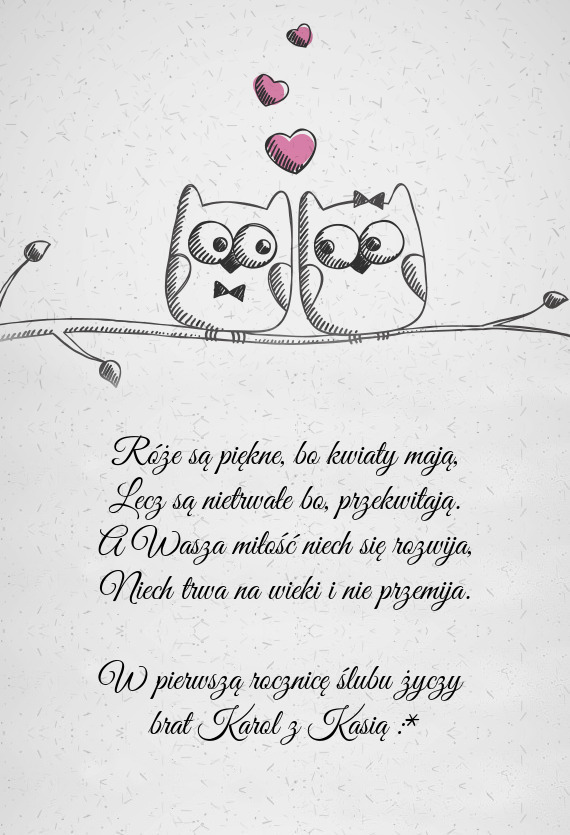 Róże są piękne, bo kwiaty mają,
Lecz są nietrwałe bo, przekwitają.
A Wasza miłość niech się rozwija,
Niech trwa na wieki i nie przemija.
W pierwszą rocznicę ślubu życzy
brat Karol z Kasią :*